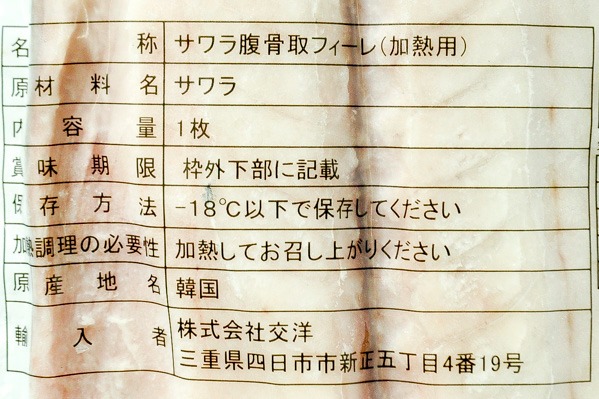 名称 サワラ腹骨取フィーレ(加熱用)
原材料名 サワラ
内容量 1枚
賞味期限 枠外下部に記載
保存方法 -18℃以下で保存してください
加熱調理の必要性 加熱してお召し上がりください
原産地名 韓国
輸入者 株式会社交洋
三重県四日市市新正五丁目4番19号